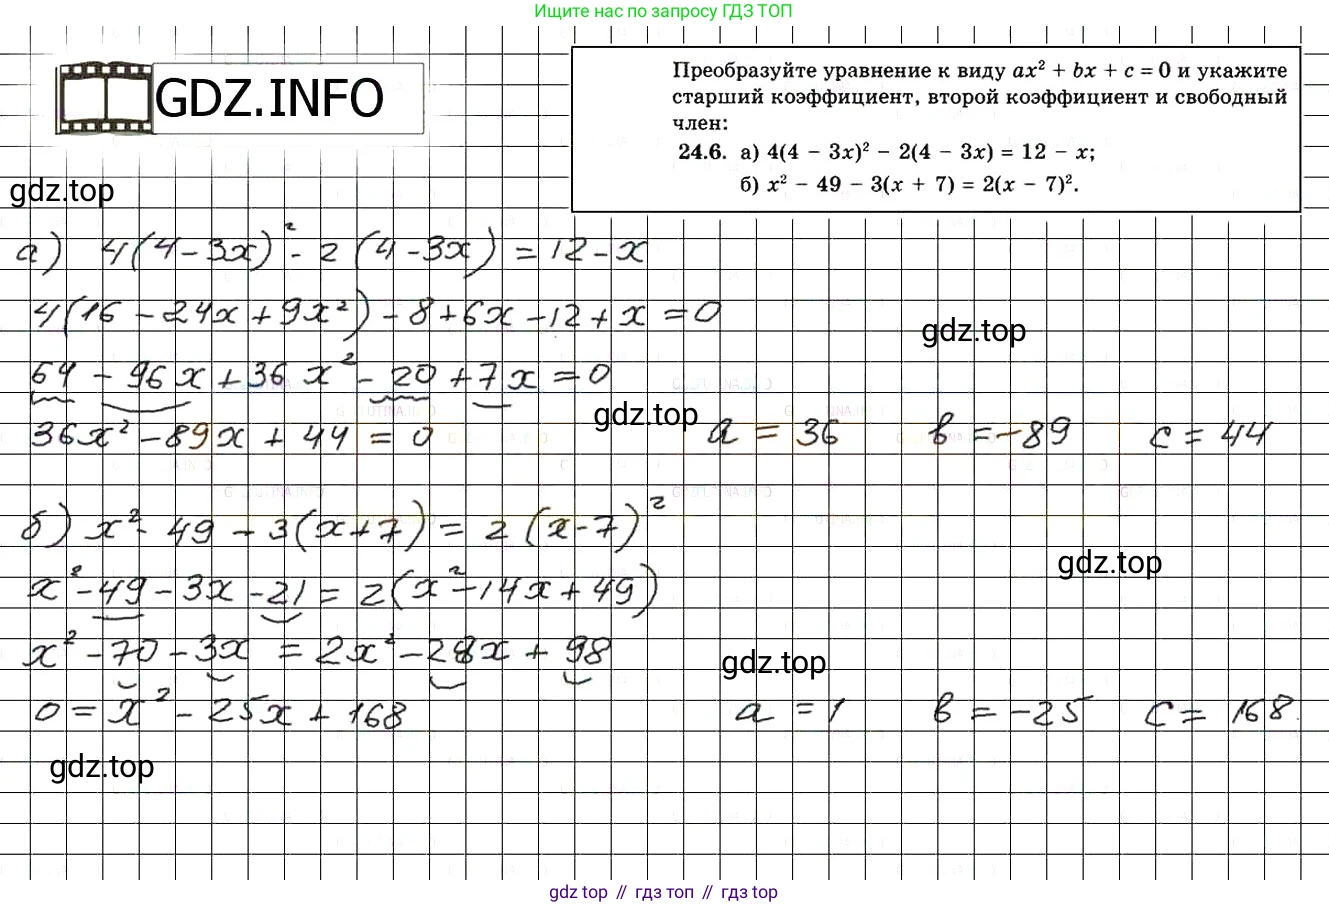 Ищите нас по запросу ГДЗ ТОП
GDZ.INFO
Преобразуйте уравнение к виду ax² + bx + c = 0 и укажите
старший коэффициент, второй коэффициент и свободный
член:
24.6. а) 4(4 − 3x)² − 2(4 − 3x) = 12 − x;
б) x² − 49 − 3(x + 7) = 2(x − 7)².
gdz.top
а) 4(4-3x)² - 2(4-3x) = 12-x
4(16-24x+9x²)-8+6x-12+x=0
gdz.top
64-96x+36x²-20+7x=0
gdz.top
36x²-89x+44=0 a=36 b=-89 c=44
б) x²-49-3(x+7)=2(x-7)²
x²-49-3x-21=2(x²-14x+49)
gdz.top
x²-70-3x=2x²-28x+98
gdz.top
0=x²-25x+168 a=1 b=-25 c=168
gdz.top
gdz top // гдз топ // гдз top